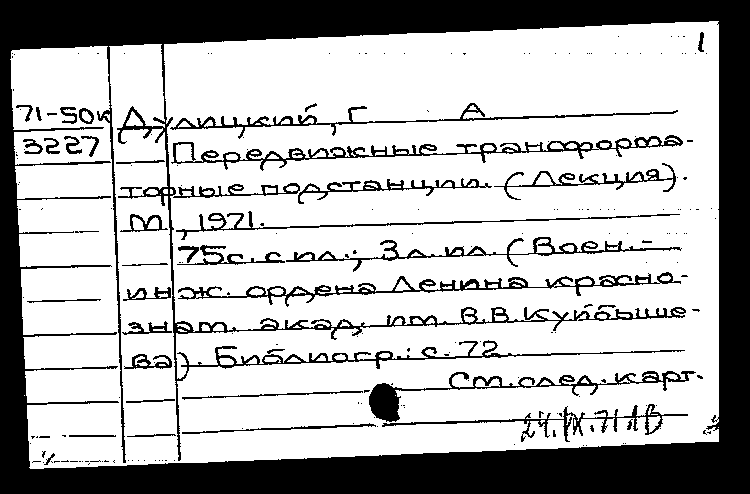 1
71-50к Дулицкий, Г А
3227 Передвижные трансформа-
торные подстанции. (Лекция).
М., 1971.
75с. с ил.; 3л. ил. (Воен.-
инж. ордена Ленина красно-
знам. акад. им. В.В.Куйбыше-
ва). Библиогр.: с. 72.
См. след. карт.
24.IX.71 ЛВ